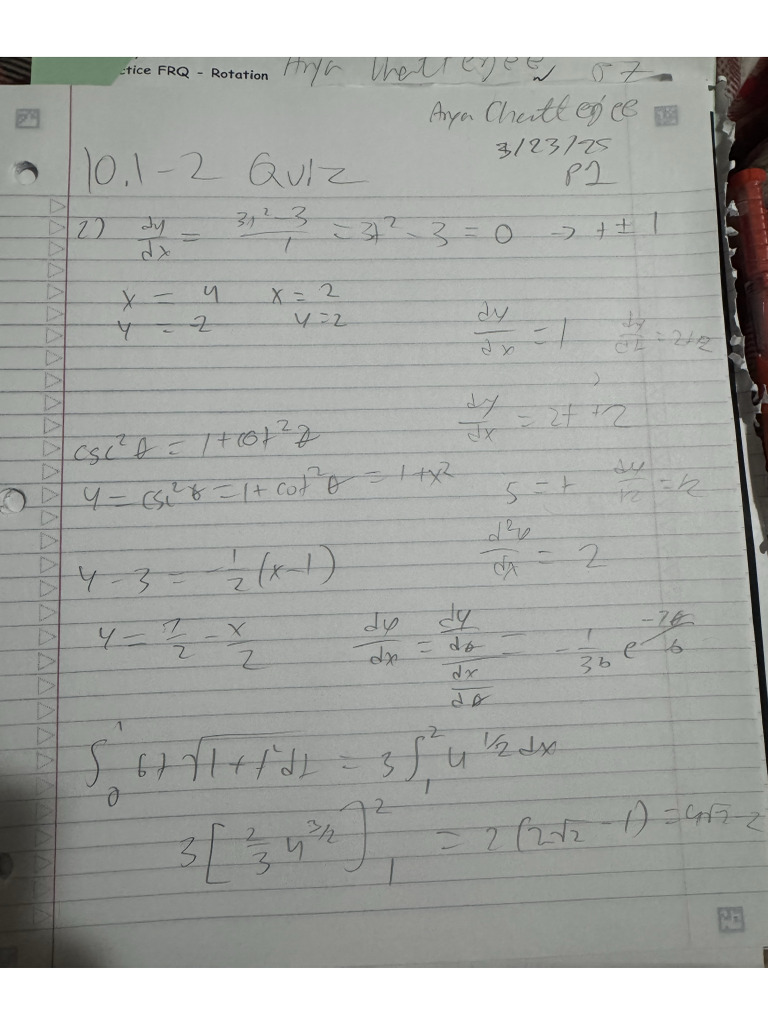 ctice FRQ - Rotation Arya Chatterjee
Arya Chatterjee
3/23/25
P1
10.1-2 Quiz
2) dy/dx = (3t² - 3)/1 = 3t² - 3 = 0 → t ± 1
x = 4 x = 2
y = -2 y = 2
dy/dx = 1
dy/dx = 2t + 2
csc²θ = 1 + cot²θ
y = csc²θ = 1 + cot²θ = 1 + x²
5 = t
d²y/dx = 2
y - 3 = -1/2 (x - 1)
y = 7/2 - x/2
dy/dx = (dy/dθ)/(dx/dθ) = -1/36 e
∫₀¹ 6t √(1 + t²) dt = 3 ∫₁² u^(1/2) dx
3 [2/3 u^(3/2)]₁² = 2(2√2 - 1) = 4√2 - 2